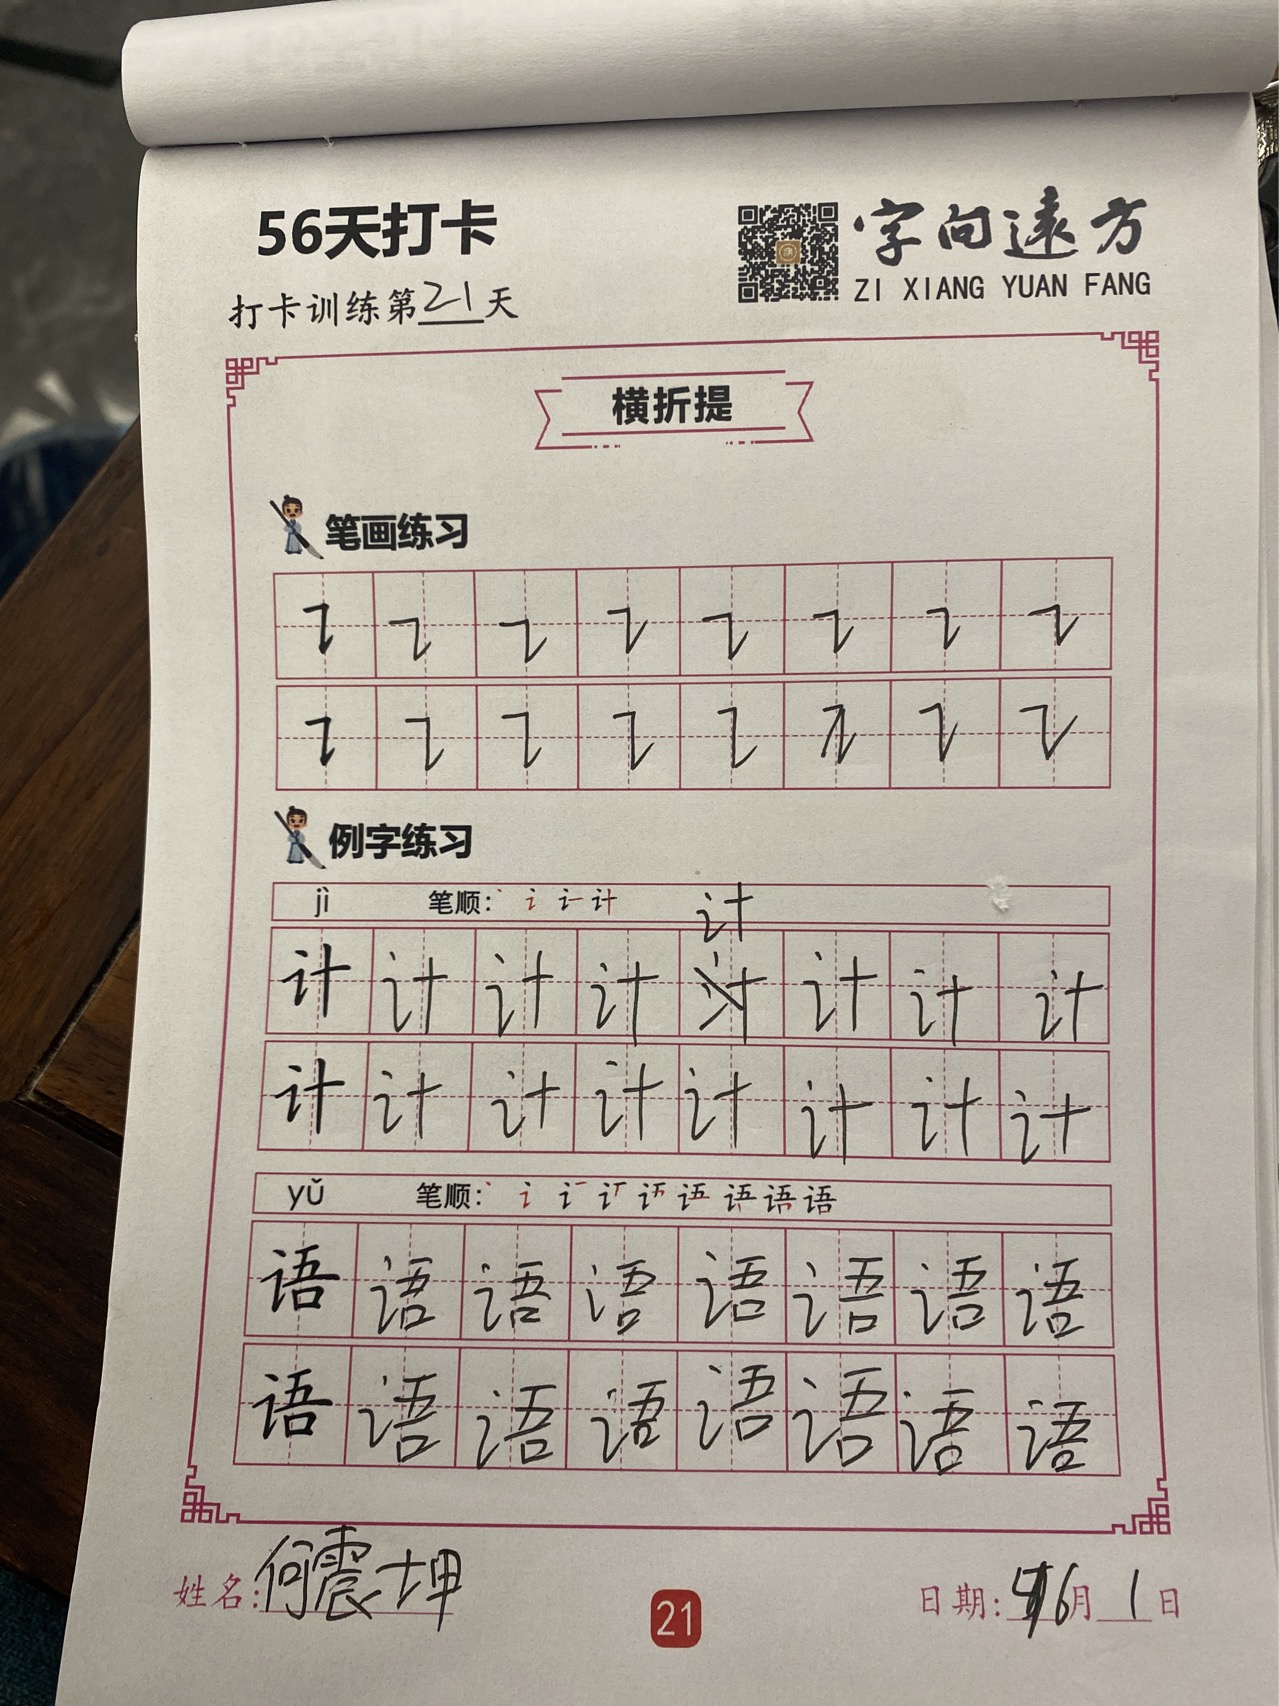 56天打卡
字向遠方
ZI XIANG YUAN FANG
打卡训练第21天
横折提
笔画练习
例字练习
jì 笔顺: 计
计
计 计 计 计 计 计 计 计
计 计 计 计 计 计 计 计
yǔ 笔顺: 语
语 语 语 语 语 语 语 语
语 语 语 语 语 语 语 语
姓名:何震坤
21
日期:6月1日